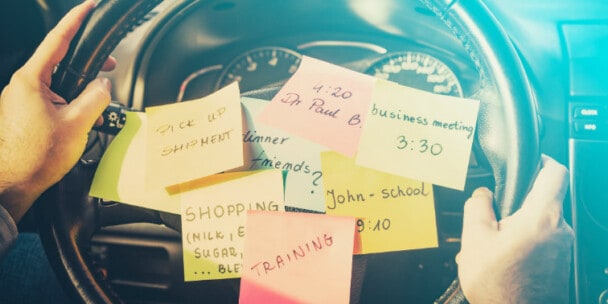 4:20
Dr Paul B.
business meeting
3:30
PICK UP
SHIPMENT
dinner
friends?
John-school
9:10
SHOPPING
(MILK, E
SUGAR,
... BLE
TRAINING